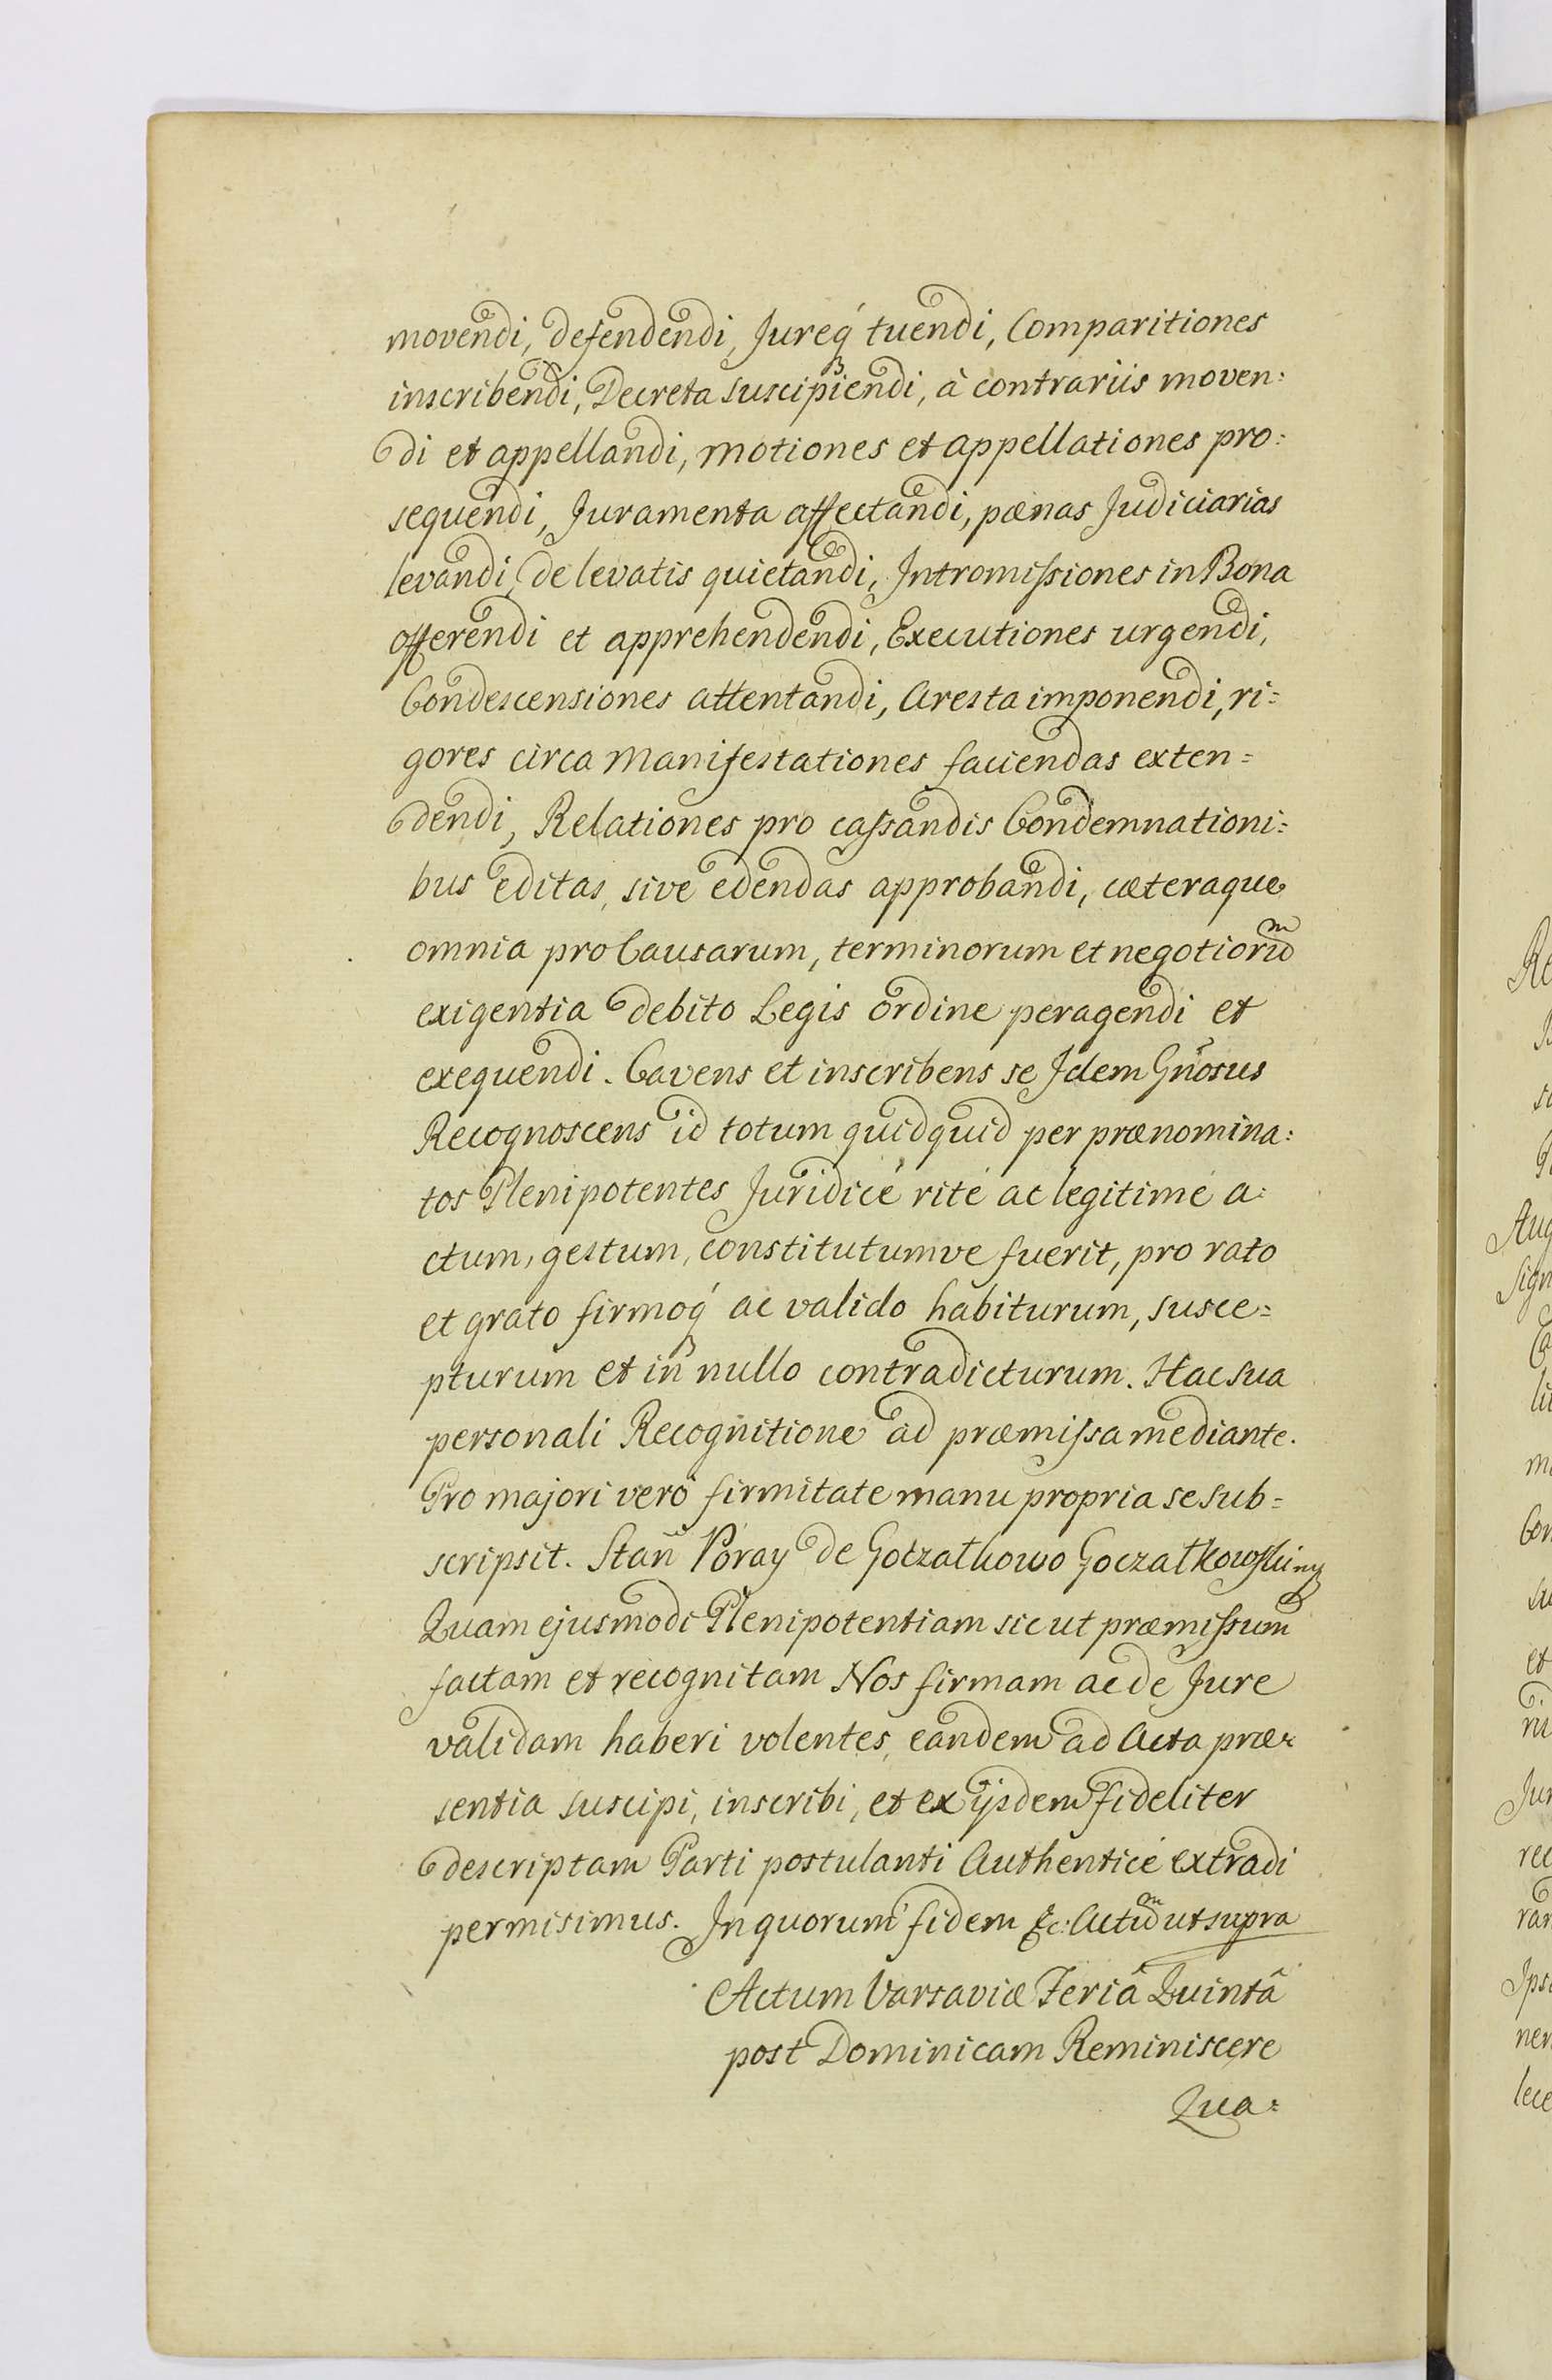 movendi, defendendi, Jureq́ tuendi, Comparitiones
inscribendi, Decreta suscipiendi, à contrariis moven:
di et appellandi, motiones et appellationes pro:
sequendi, Juramenta affectandi, pœnas Judiciarias
levandi, de levatis quietandi, Intromiſsiones in Bona
offerendi et apprehendendi, Executiones urgendi,
Condescensiones attentandi, Aresta imponendi, ri=
gores circa Manifestationes faciendas exten=
dendi, Relationes pro caſsandis Condemnationi=
bus editas, sive edendas approbandi, cæteraque
omnia pro Causarum, terminorum et negotioruͫ
exigentia debito Legis ordine peragendi et
exequendi. Cavens et inscribens se Idem Gñosus
Recognoscens id totum quidquid per prænomina:
tos Plenipotentes Juridicé rité ac legitimé a:
ctum, gestum, constitutumve fuerit, pro rato
et grato firmoq́ ac valido habiturum, susce=
pturum et in nullo contradicturum. Hac sua
personali Recognitione ad præmiſsa mediante.
Pro majori vero firmitate manu propria se sub=
scripsit. Stañ Poray de Goczalkowo Goczalkowſki mp
Quam ejusmodi Plenipotentiam sic ut præmiſsum
factam et recognitam Nos firmam ac de Jure
validam haberi volentes, eandem ad Acta præ=
sentia suscipi, inscribi, et ex ijsdem fideliter
descriptam Parti postulanti Authenticé extradi
permisimus. In quorum fidem &c: Actuͫ ut supra
Actum Varsaviæ Feriâ Quintâ
post Dominicam Reminiscere
Qua=